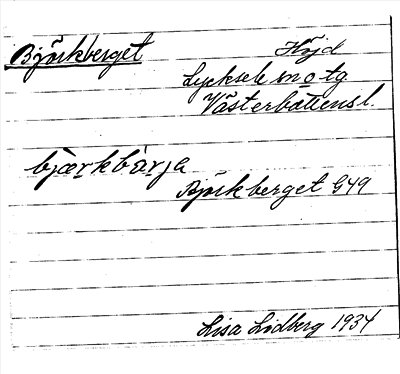 Björkberget Höjd
Lycksele m o tg
Västerbottensl.
bjærkbàrja
Björkberget G49
Lisa Lidberg 1934